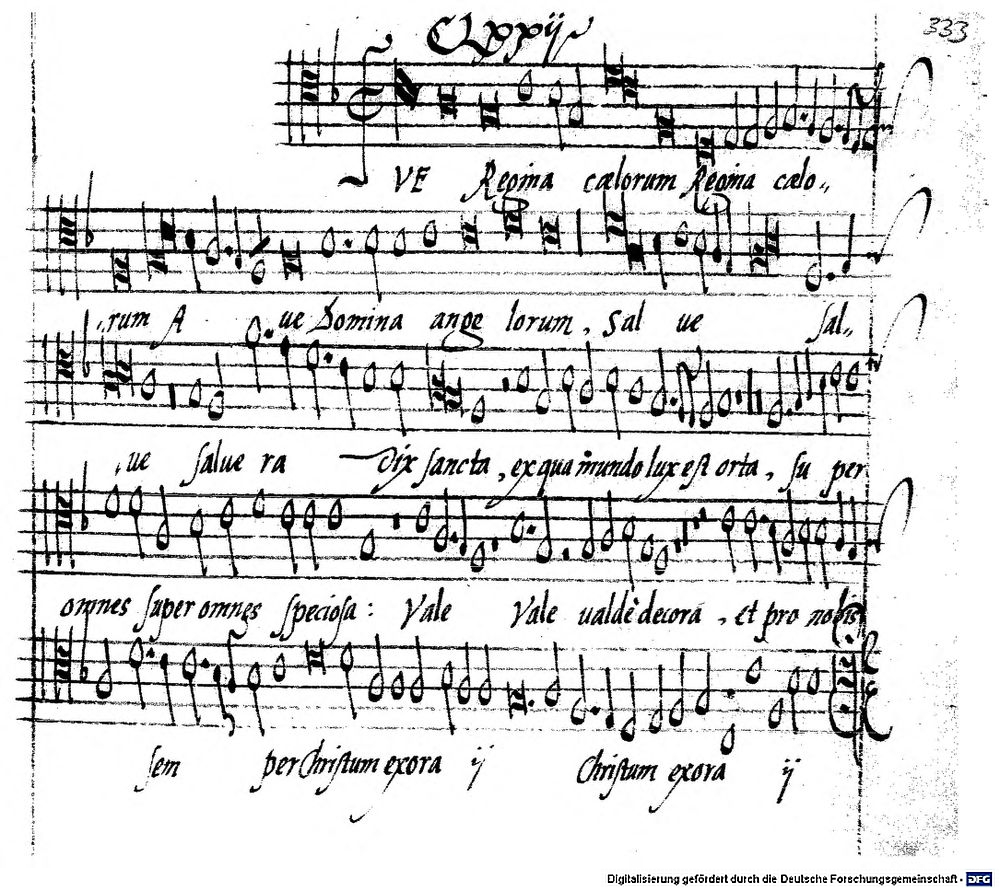 CLxxij
333
VE Regina cælorum Regina cælo,,
,,rum A ue Domina ange lorum, Sal ue sal,,
,,ue salue ra Dix sancta, ex qua mundo lux est orta, su per
omnes super omnes speciosa: Vale Vale ualdè decora, et pro nobis
sem per Christum exora ij Christum exora ij
Digitalisierung gefördert durch die Deutsche Forschungsgemeinschaft - DFG